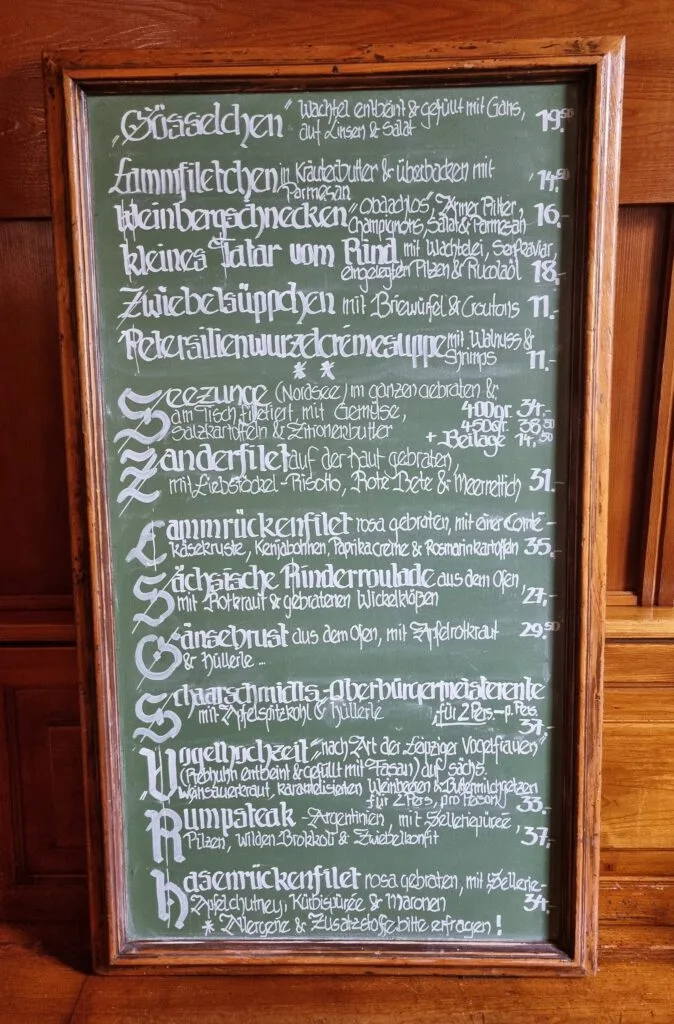 „Gösselchen" Wachtel entbeint & gefüllt mit Gans, 19.50
auf Linsen & Salat
Lammfiletchen in Kräuterbutter & überbacken mit 14,50
Parmesan
Weinbergschnecken „Obdachlos", Armer Ritter, 16,-
Champignons, Salat & Parmesan
kleines Tatar vom Rind mit Wachtelei, Senfcaviar,
eingelegten Pilzen & Rucolaöl 18,-
Zwiebelsüppchen mit Briewürfel & Croutons 11,-
Petersilienwurzelcrémesuppe mit Walnuss &
Shrimps 11,-
* *
Seezunge (Nordsee) im ganzen gebraten &
am Tisch filetiert, mit Gemüse, 400gr. 34,-
Salzkartoffeln & Zitronenbutter 450gr. 38,50
+ Beilage 14,50
Zanderfilet auf der Haut gebraten,
mit Liebstöckel-Risotto, Rote Bete & Meerrettich 31.-
Lammrückenfilet rosa gebraten, mit einer Comté-
käsekruste, Kenjabohnen, Paprikacreme & Rosmarinkartoffeln 35,-
Sächsische Rinderroulade aus dem Ofen,
mit Rotkraut & gebratenen Wickelklößen 27,-
Gänsebrust aus dem Ofen, mit Apfelrotkraut 29.50
& Hüllerle ...
Schaarschmidts-Oberbürgermeisterente
mit Apfelspitzkohl & Hüllerle für 2 Pers.-p. Pers.
37,-
Vogelhochzeit „nach Art der Leipziger Vogelfrauen"
(Rebhuhn entbeint & gefüllt mit Fasan) auf sächs.
Weinsauerkraut, karamelisierten Weinbeeren & Buttermilchgetzen
für 2 Pers, pro Person 33.-
Rumpsteak - Argentinien, mit Selleriepüree,
Pilzen, wilden Brokkoli & Zwiebelkonfit 37,-
Hasenrückenfilet rosa gebraten, mit Sellerie-
Apfelchutney, Kürbispüree & Maronen 34,-
* Allergene & Zusatzstoffe bitte erfragen!